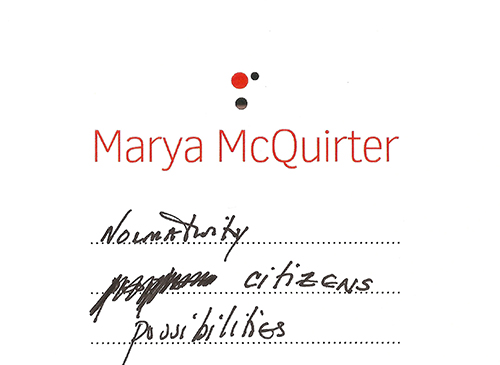 Marya McQuirter
Normativity
citizens
possibilities